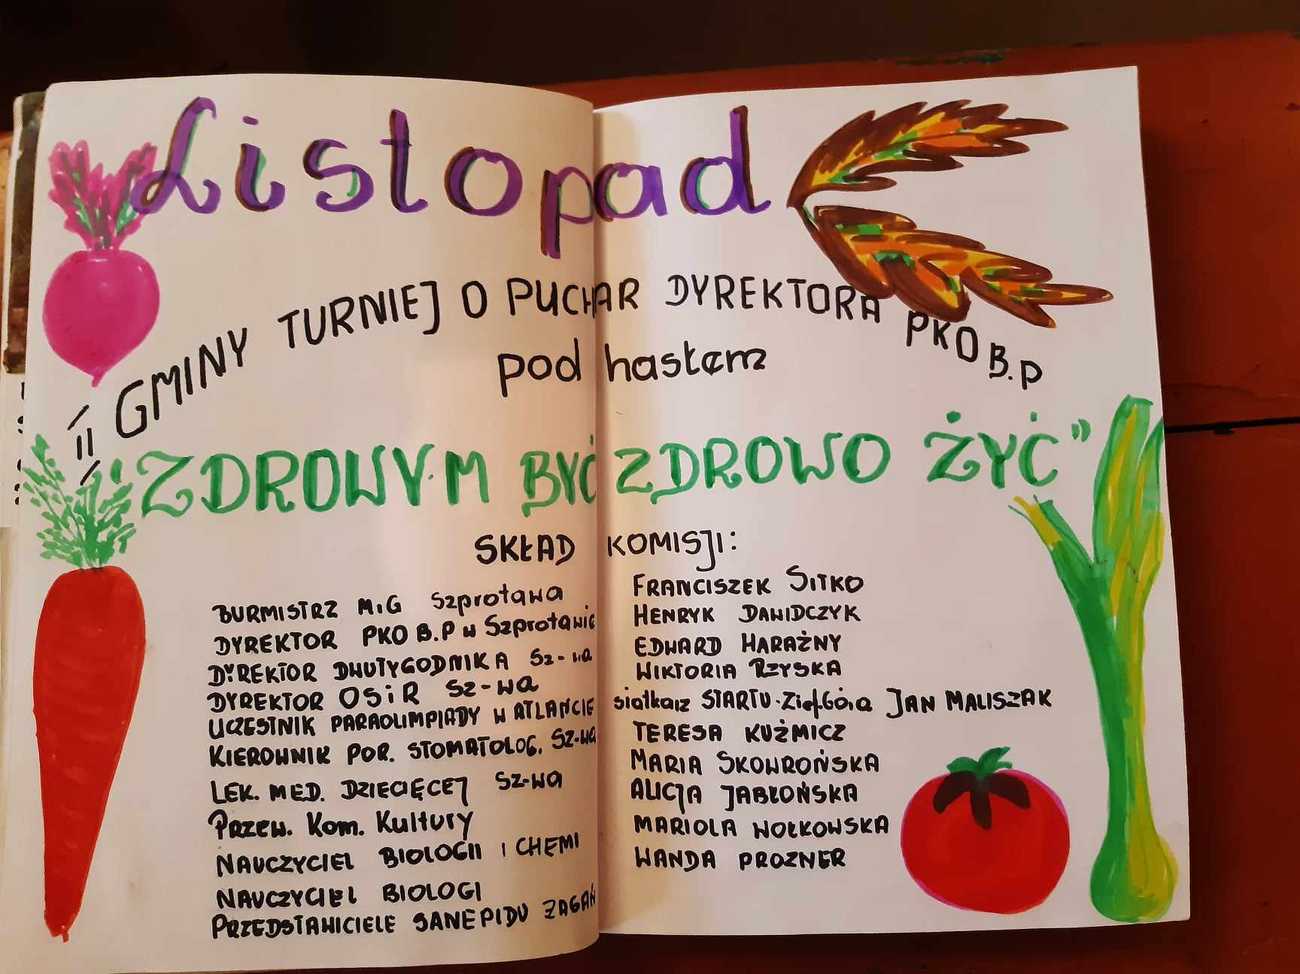 Listopad
II GMINY TURNIEJ O PUCHAR DYREKTORA PKO B.P
pod hasłem
"ZDROWYM BYĆ ZDROWO ŻYĆ"
SKŁAD KOMISJI:
BURMISTRZ MiG Szprotawa FRANCISZEK SITKO
DYREKTOR PKO B.P w Szprotawie HENRYK DAWIDCZYK
DYREKTOR DWUTYGODNIKA Sz-wa EDWARD HARAŻNY
DYREKTOR OSiR Sz-wa WIKTORIA RZYSKA
UCZESTNIK PARAOLIMPIADY W ATLANCIE siatkarz STARTU-Ziel.Góra JAN MALISZAK
KIEROWNIK POR. STOMATOLOG. Sz-wa TERESA KUŹMICZ
LEK. MED. DZIECIĘCEJ Sz-wa MARIA SKOWROŃSKA
PRZEW. KOM. KULTURY ALICJA JABŁOŃSKA
NAUCZYCIEL BIOLOGII i CHEMI MARIOLA WOŁKOWSKA
NAUCZYCIEL BIOLOGI WANDA PROZNER
PRZEDSTAWICIELE SANEPIDU ŻAGAŃ